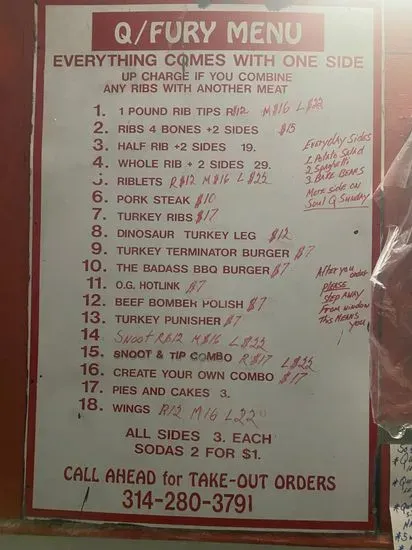 Q/FURY MENU
EVERYTHING COMES WITH ONE SIDE
UP CHARGE IF YOU COMBINE
ANY RIBS WITH ANOTHER MEAT
1. 1 POUND RIB TIPS R$12 M$16 L$22
2. RIBS 4 BONES +2 SIDES $15
3. HALF RIB +2 SIDES 19.
4. WHOLE RIB + 2 SIDES 29.
5. RIBLETS R$12 M$16 L$22
6. PORK STEAK $10
7. TURKEY RIBS $17
8. DINOSAUR TURKEY LEG $12
9. TURKEY TERMINATOR BURGER $7
10. THE BADASS BBQ BURGER $7
11. O.G. HOTLINK $7
12. BEEF BOMBER POLISH $7
13. TURKEY PUNISHER $7
14 SNOOT R$12 M$16 L$22
15. SNOOT & TIP COMBO R$17 L$22
16. CREATE YOUR OWN COMBO $17
17. PIES AND CAKES 3.
18. WINGS R12 M16 L22
ALL SIDES 3. EACH
SODAS 2 FOR $1.
CALL AHEAD for TAKE-OUT ORDERS
314-280-3791
Everyday Sides
1. Potato Salad
2. Spaghetti
3. Bake Beans
More side on
Soul Q Sunday
After you
order
please
step away
From window
This means
you